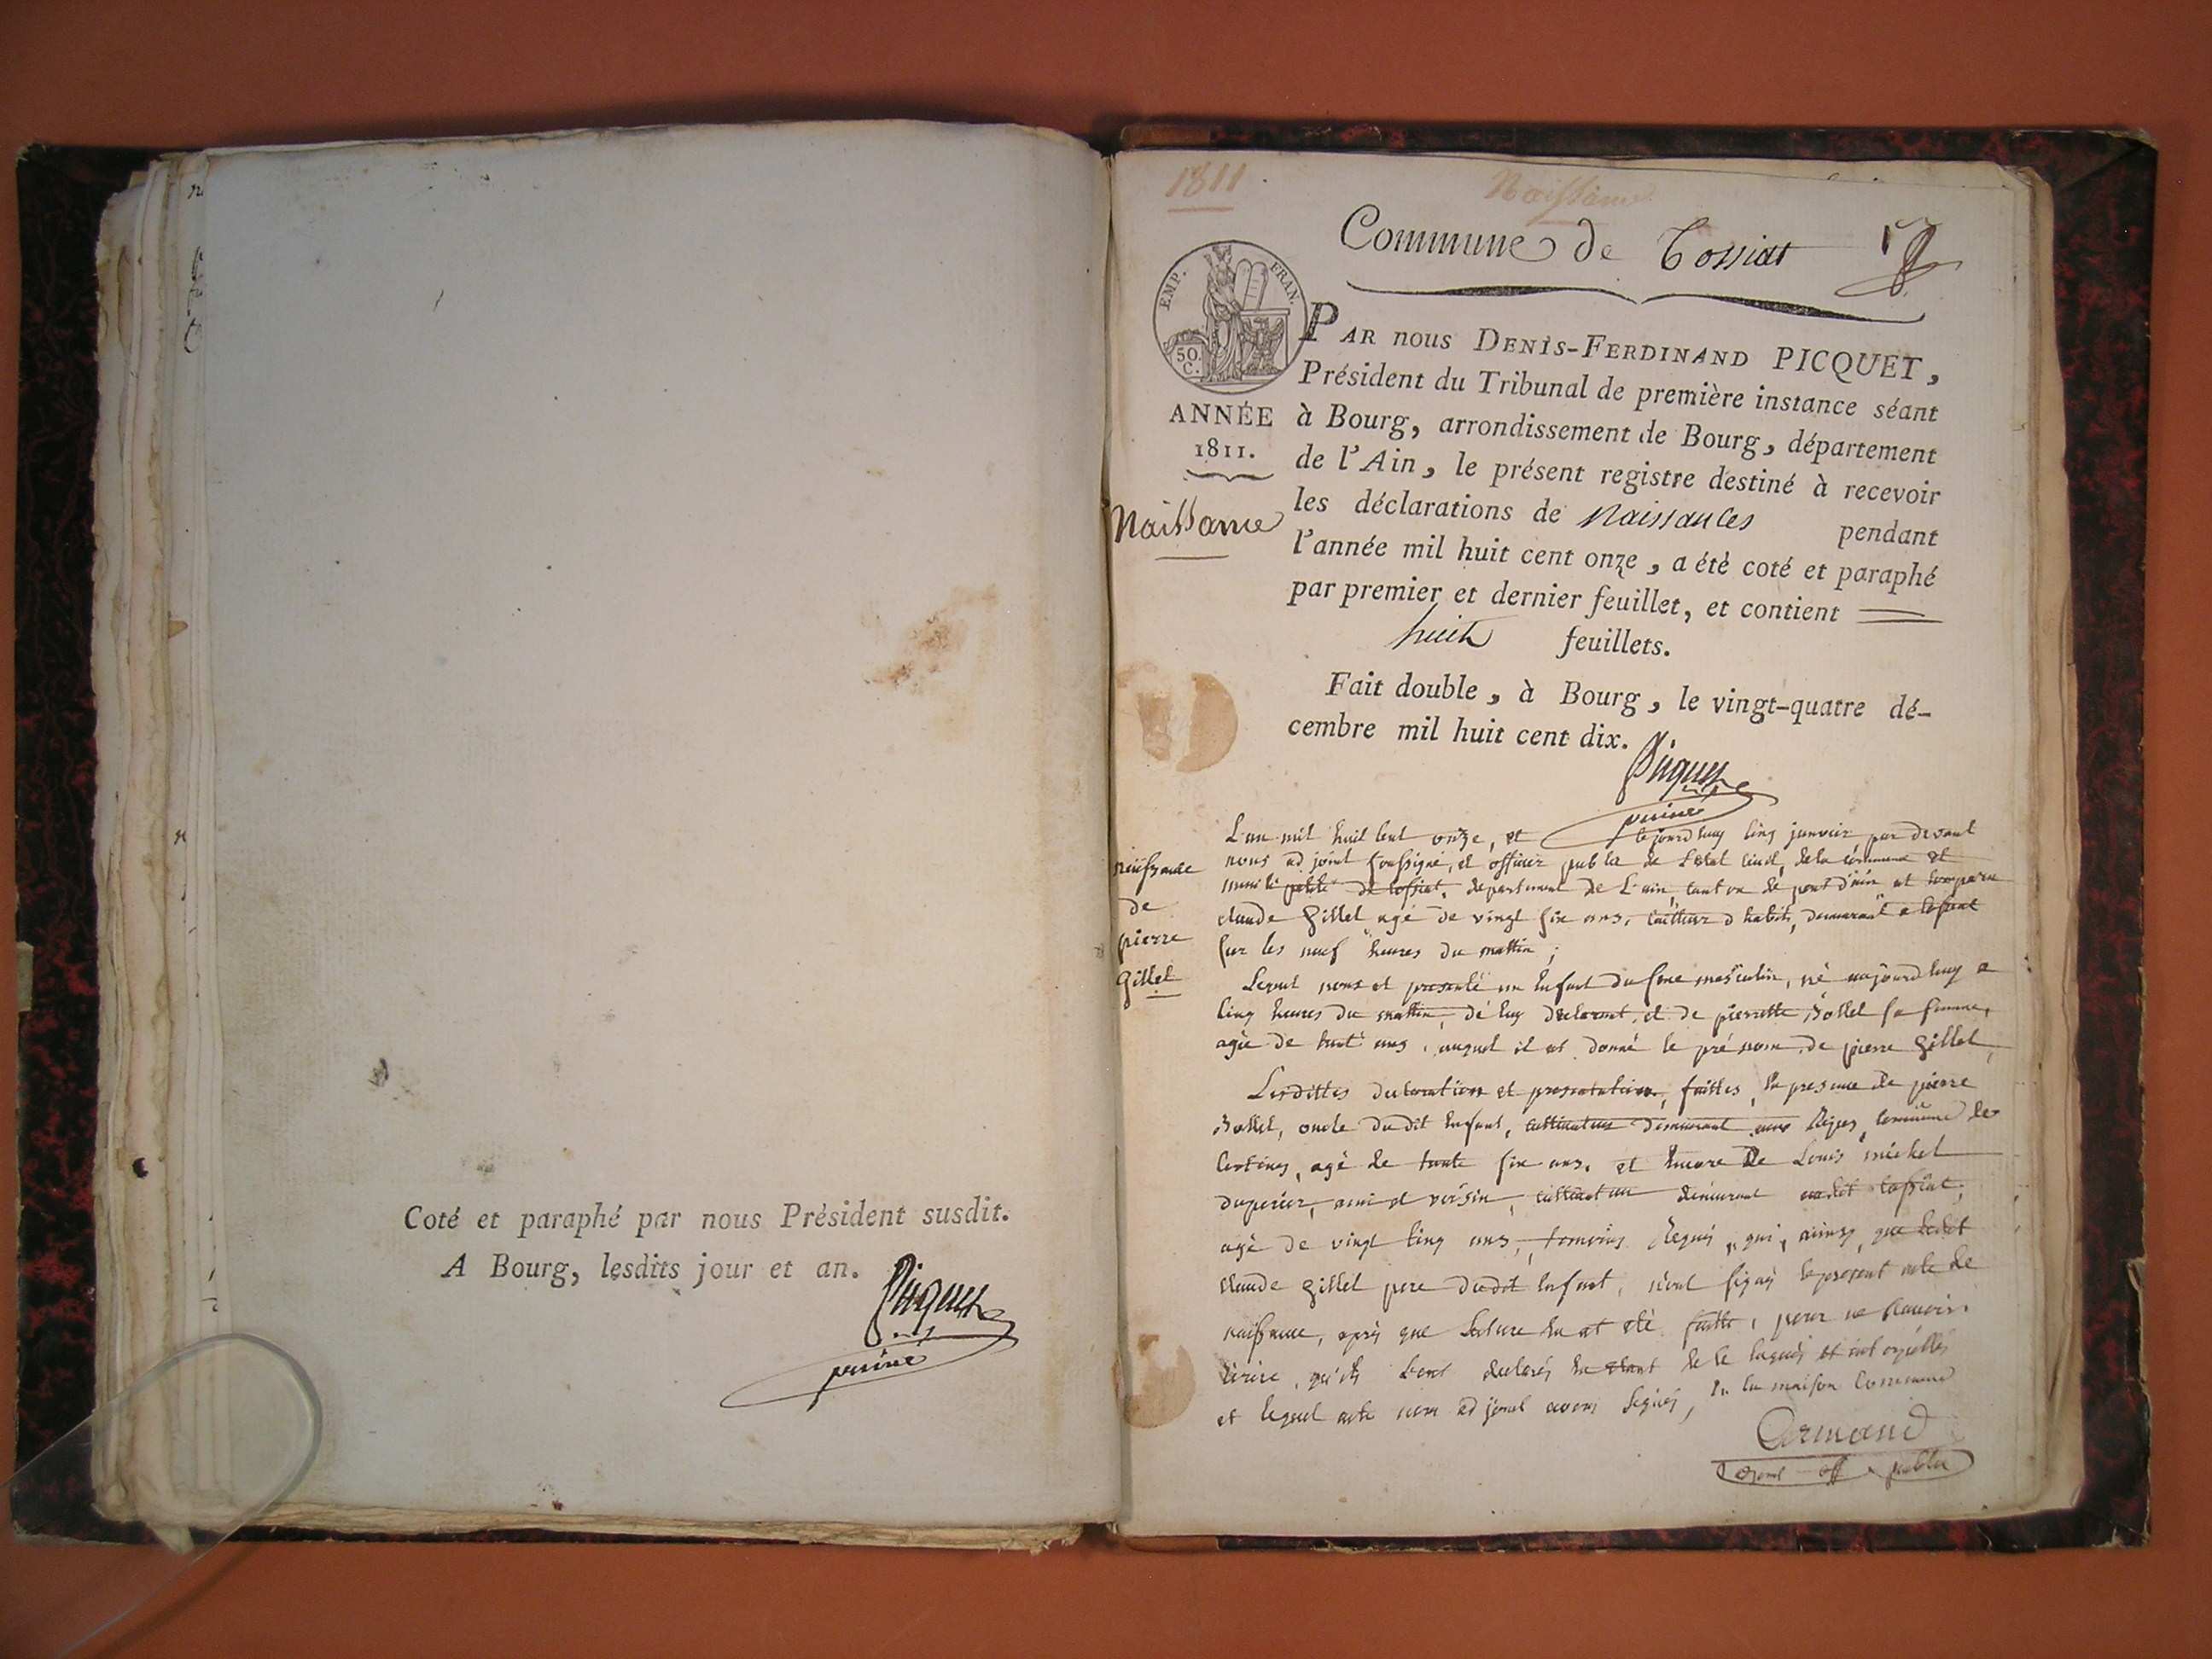 Coté et paraphé par nous Président susdit.
A Bourg, lesdits jour et an.
Picquet
1811
Naissance
Commune de Tossiat
EMP. FRAN.
50. C.
ANNÉE
1811.
Naissance
PAR nous DENIS-FERDINAND PICQUET,
Président du Tribunal de première instance séant
à Bourg, arrondissement de Bourg, département
de l'Ain, le présent registre destiné à recevoir
les déclarations de Naissances pendant
l'année mil huit cent onze, a été coté et paraphé
par premier et dernier feuillet, et contient
huit feuillets.
Fait double, à Bourg, le vingt-quatre dé-
cembre mil huit cent dix.
Picquet
naissance
de
pierre
Gillet
L'an mil huit cent onze, et cejourd'huy cinq janvier par devant
nous adjoint soussigné, et officier public de L'état civil, de la commune et
de tossiat, departement de L'ain, canton de pont d'ain, et
claude Gillet agé de vingt six ans, tailleur d'habits, demeurant a tossiat
sur les neuf heures du mattin;
Lequel nous et presenté un enfant du sexe masculin, né aujourd'huy a
cinq heures du mattin, de luy declarant, et de pierrette sa femme,
agée de ans, auquel il at donné le prénom de pierre Gillet,
Lesdittes declaration et presentation, faittes, en presence de pierre
oncle dudit enfant, cultivateur demeurant commune de
Certines, agé de trente six ans, et encore de Louis michel
duperier, ami et voisin, cultivateur demeurant audit tossiat,
agé de vingt cinq ans, temoins requis, qui, ainsy que ledit
claude Gillet pere dudit enfant, n'ont signé le present acte de
naissance, après que lecture en at été faitte, pour ne savoir
écrire, qu'ils l'ont declarés de ce
et lequel acte nous adjoint avons signés, en la maison Commune
Armand
adjoint off public